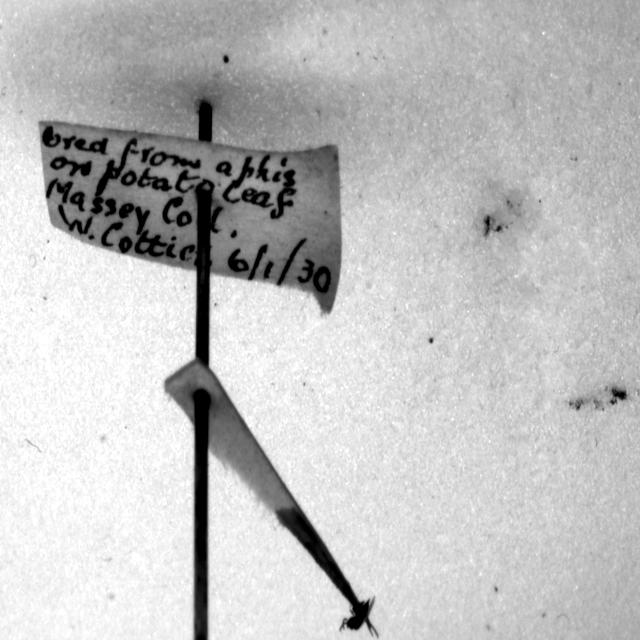 bred from aphis
on potato leaf
Massey Col.
W. Cottier 6/1/30